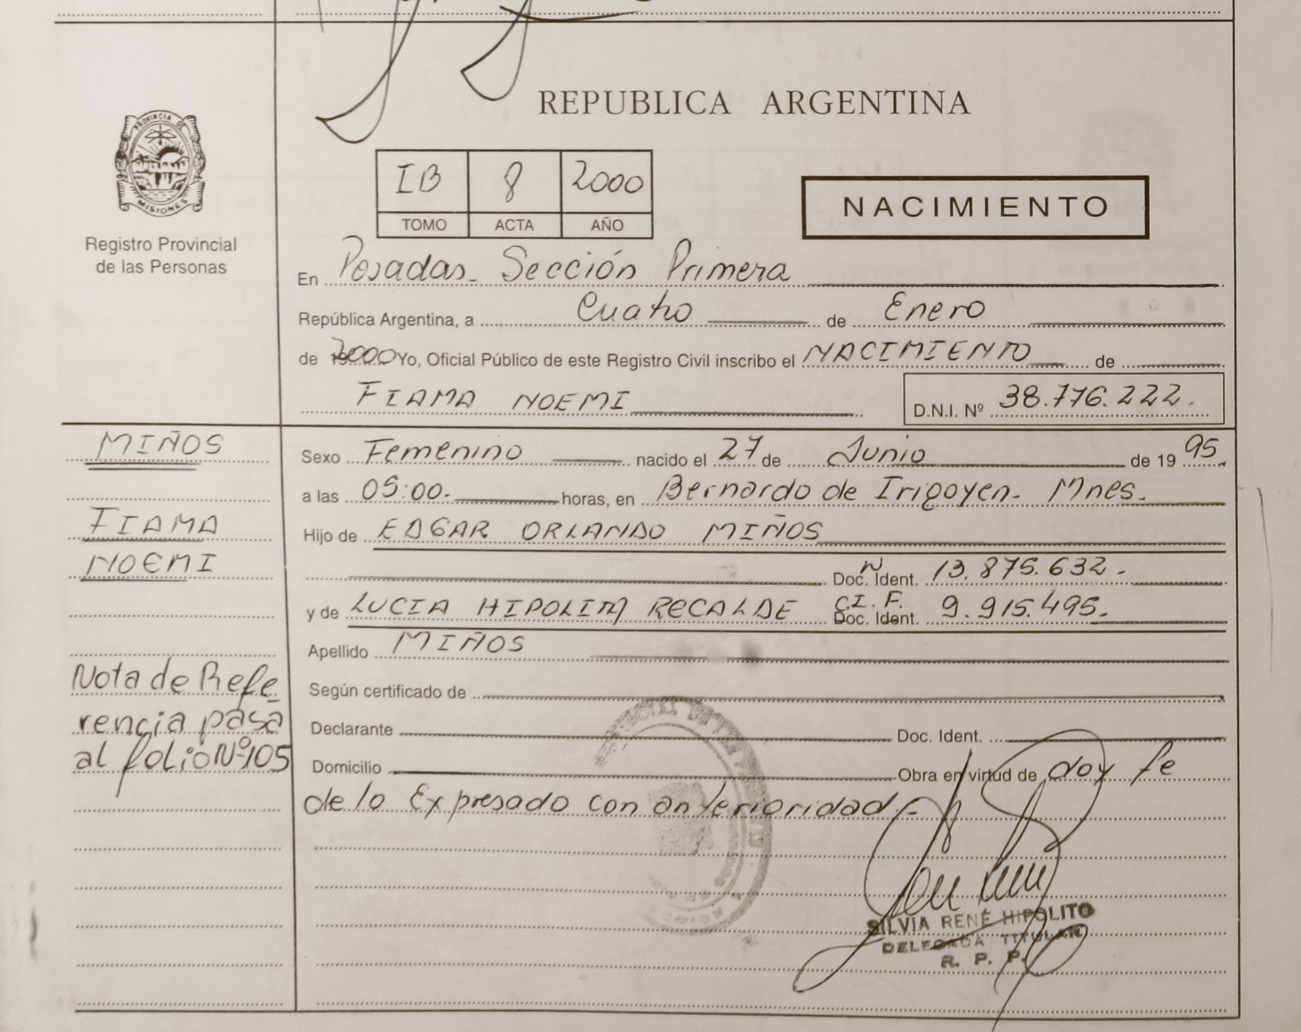 REPUBLICA ARGENTINA
PROVINCIA DE
MISIONES
Registro Provincial
de las Personas
IB 8 2000
TOMO ACTA AÑO
NACIMIENTO
En Posadas - Sección Primera
República Argentina, a Cuatro de Enero
de 2000 Yo, Oficial Público de este Registro Civil inscribo el NACIMIENTO de
FIAMA NOEMI D.N.I. Nº 38.776.222.
MIÑOS
FIAMA
NOEMI
Nota de Refe
rencia pasa
al folio Nº 105
Sexo Femenino nacido el 27 de Junio de 19 95
a las 05:00. horas, en Bernardo de Irigoyen - Mnes.
Hijo de EDGAR ORLANDO MIÑOS
Doc. Ident. 13.875.632.
y de LUCIA HIPOLITA RECALDE C.I. F. Doc. Ident. 9.915.495.
Apellido MIÑOS
Según certificado de
Declarante Doc. Ident.
Domicilio Obra en virtud de doy fe
de lo Expresado con anterioridad -
SILVIA RENÉ HIPOLITO
DELEGADA TITULAR
R. P. P.